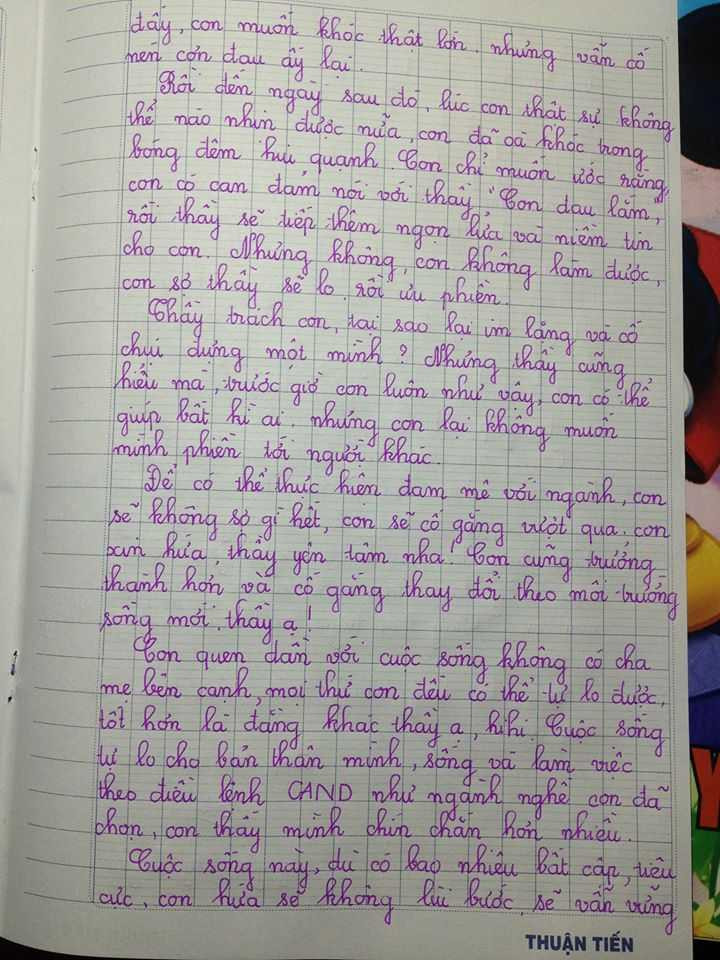 đấy, con muốn khóc thật lớn. nhưng vẫn cố
nén cơn đau ấy lại.
Rồi đến ngày sau đó, lúc con thật sự không
thể nào nhịn được nữa, con đã oà khóc trong
bóng đêm hiu quạnh. Con chỉ muốn ước rằng,
con có can đảm nói với thầy "Con đau lắm",
rồi thầy sẽ tiếp thêm ngọn lửa và niềm tin
cho con. Nhưng không, con không làm được,
con sợ thầy sẽ lo rồi ưu phiền.
Thầy trách con, tại sao lại im lặng và cố
chịu đựng một mình? Nhưng thầy cũng
hiểu mà, trước giờ con luôn như vậy, con có thể
giúp bất kì ai. nhưng con lại không muốn
mình phiền tới người khác.
Để có thể thực hiện đam mê với ngành, con
sẽ không sợ gì hết, con sẽ cố gắng vượt qua. con
xin hứa, thầy yên tâm nha! Con cũng trưởng
thành hơn và cố gắng thay đổi theo môi trường
sống mới. thầy ạ!
Con quen dần với cuộc sống không có cha
mẹ bên cạnh, mọi thứ con đều có thể tự lo được,
tốt hơn là đằng khác thầy ạ, hihi. Cuộc sống
tự lo cho bản thân mình, sống và làm việc
theo điều lệnh CAND như ngành nghề con đã
chọn, con thấy mình chín chắn hơn nhiều.
Cuộc sống này, dù có bao nhiêu bất cập, tiêu
cực, con hứa sẽ không lùi bước, sẽ vẫn vững
THUẬN TIẾN